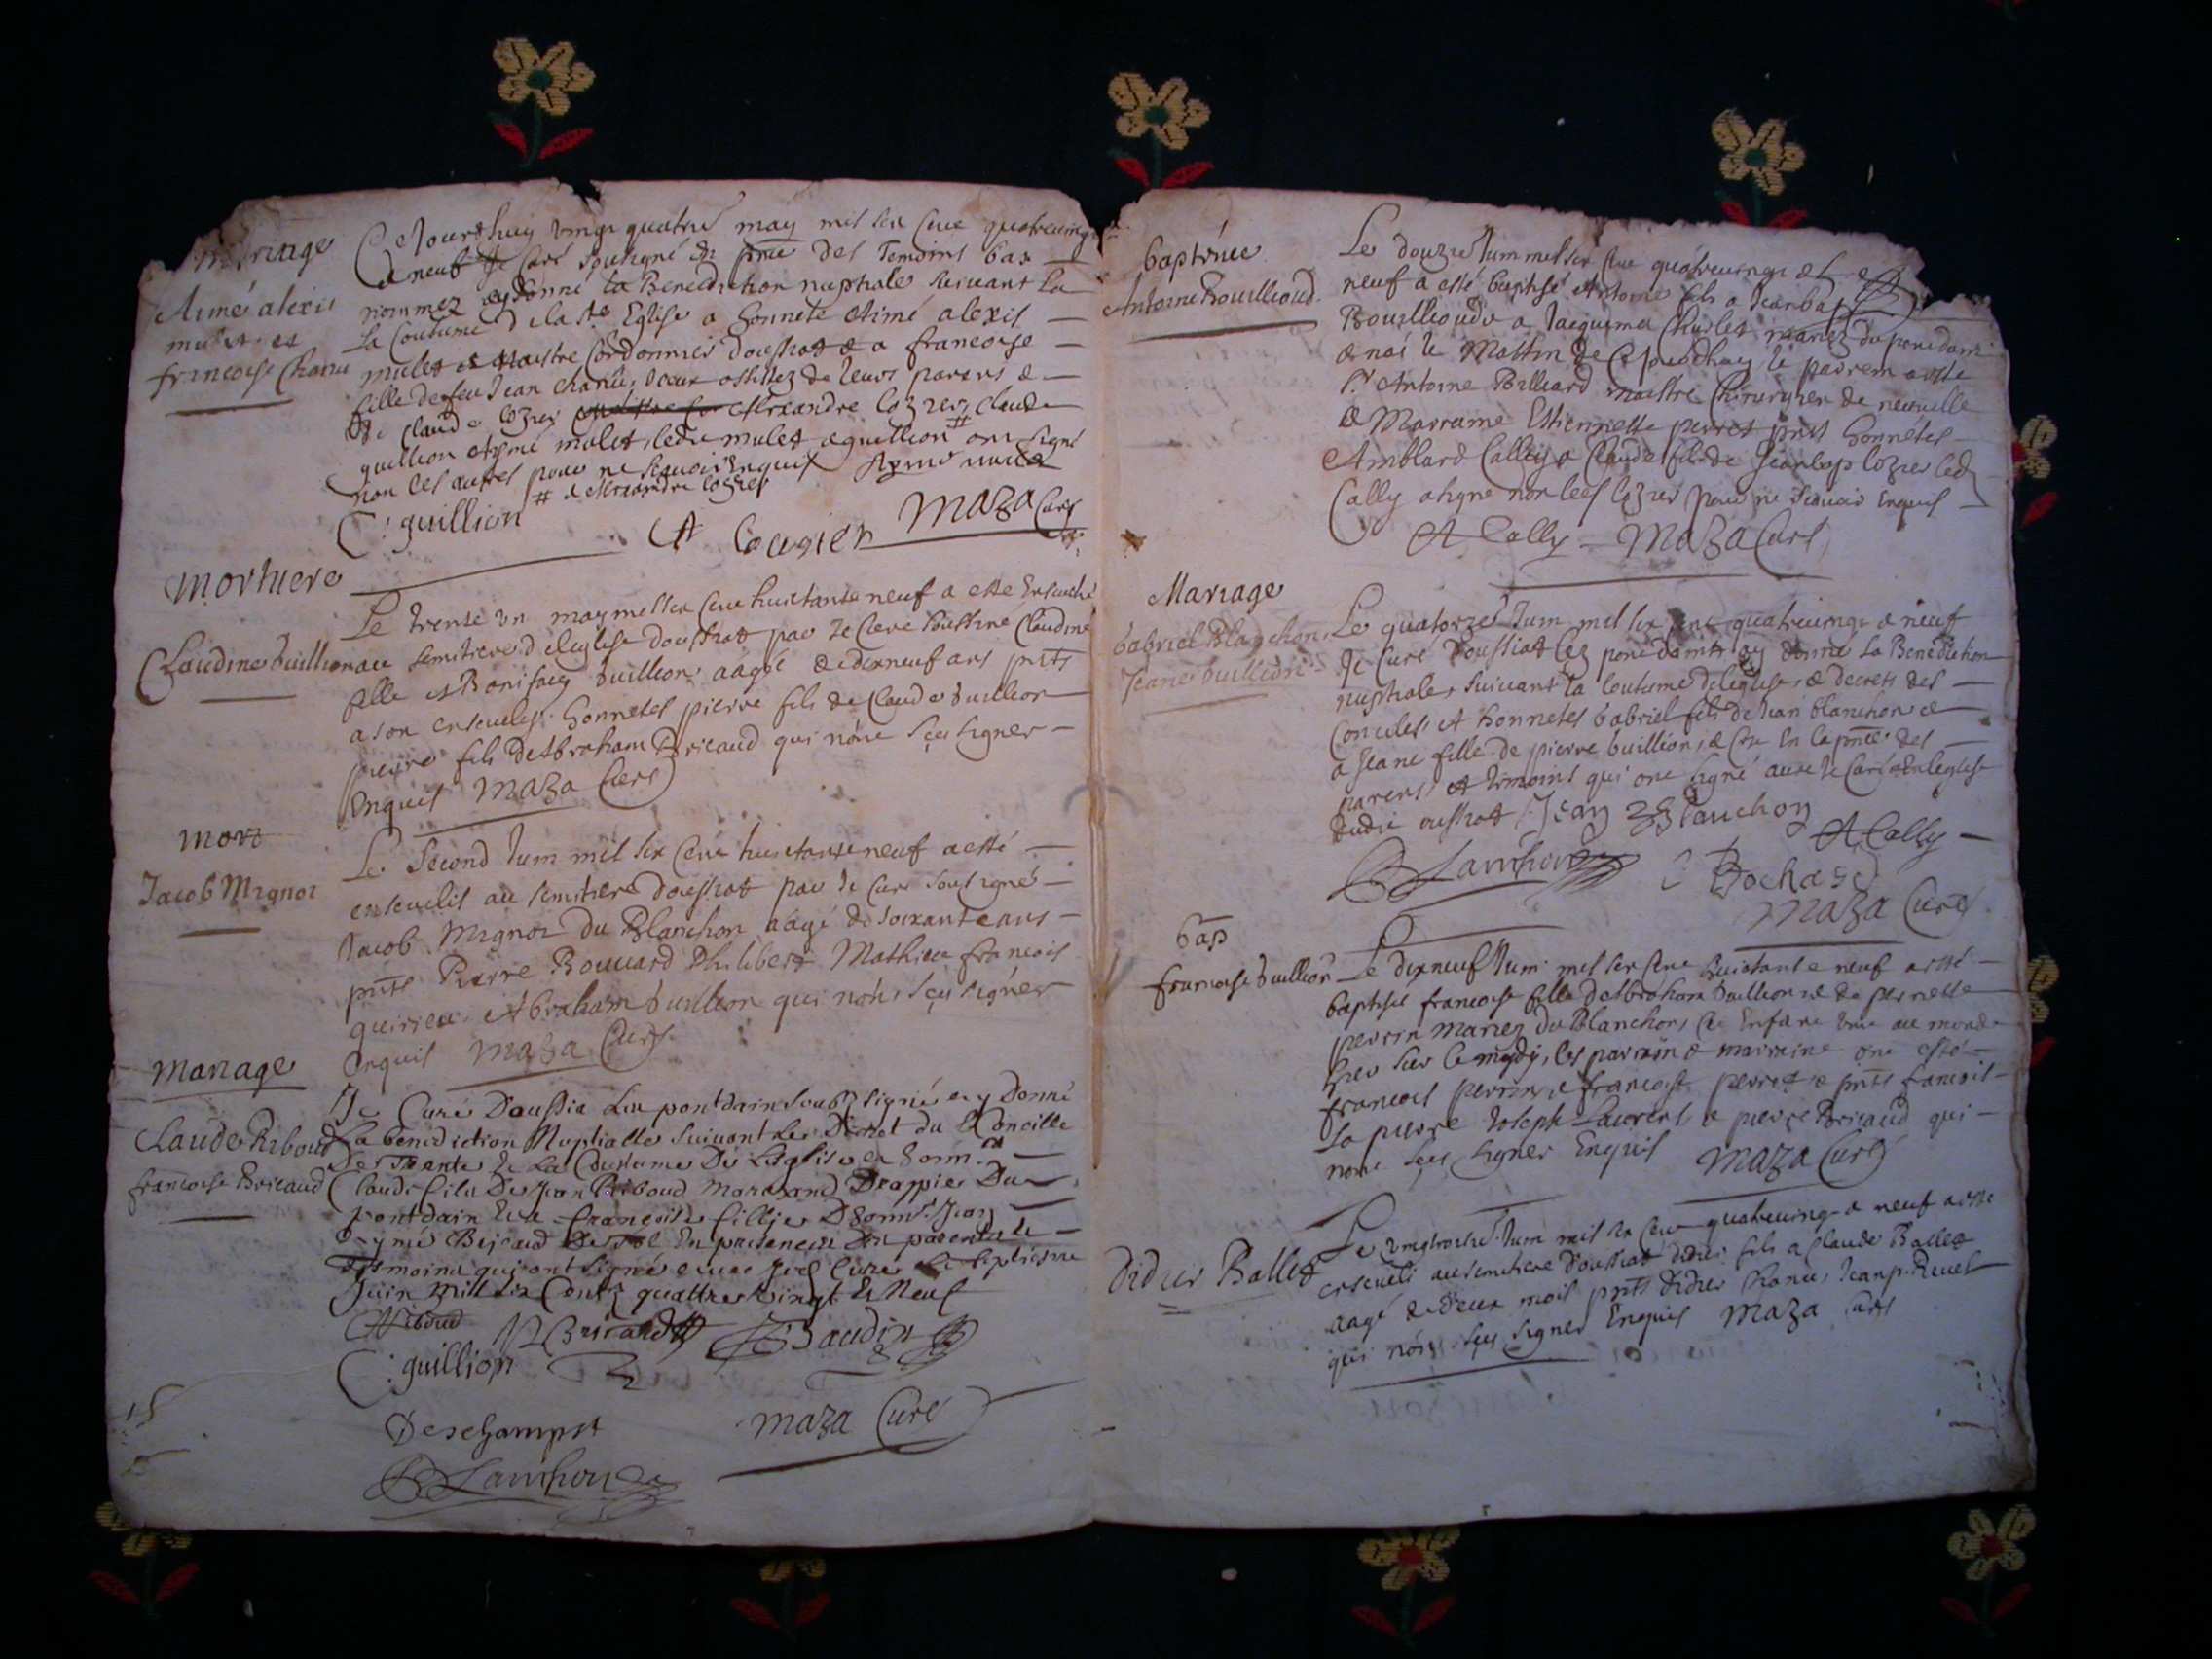 mariage
Aimé alexis
mulet et
francoise Chanu
Ce Jourdhuy vingt quatre may mil six cent quatreving
et neuf Je Curé soubsigné en pnce des Temoins bas
nommez ay donné la Benediction nuptiale suivant la
la Coutume de la Ste Eglise a honnete Aimé alexis
mulet maistre Cordonnier doussiat & a francoise
fille de feu Jean chanu, assistez de leurs parens &
de claude cozier Alexandre cozier, claude
guillion Aymé mulet, ledit mulet & guillion # ont signé
non les autres pour ne scavoir enquis
# & Alexandre cozier
C : guillion
A Cougier Maza Curé
mortuere
Claudine buillion
Le trente un may mil six cent huictante neuf a esté Ensevelie
au semitiere deleglise doussiat par Je Curé soussiné Claudine
fille Bonifacy buillion aagée de dixneuf ans pnts
a son ensevelis. honnetes pierre fils de Claude buillion
pierre fils de Abraham Bricaud qui nont sceu signer
Enquis Maza Curé
mort
Jacob Mignot
Le Second Juin mil six cent huictante neuf a esté
ensevelis au semitiere doussiat par Je Curé soussigné
Jacob Mignot du Blanchon aagé de soixante ans
pnts Pierre Bouvard Philibert Mathieu francois
quirieu Abraham buillion qui nont sceu signer
enquis Maza Curé
Mariage
Claude Riboud
francoise Bricaud
Je Curé Doussia Lin pontdain soubz signé ay Donné
La benediction Nuptialle suivant Les Decret du Concille
De Trante & La Coustume De Leglise a honn.
Claude fils De Jean Riboud Marchand Drappier Du
pontdain & a francoise fillie D honn. Jean
Aymé Bricaud En presence Des parents &
tesmoins qui ont signé avec Moy Curé Le septiesme
Juin Mill six Centz quattre vingt & Neuf
Riboud Bricaud JBaudin
C : guillion
Deschamps
Maza Curé
Blanchon
baptême
Antoine Bouillioud
Le douzie Juin mil six cent quatrevingt et
neuf a esté baptisé Antoine fils a Jeanbap
Bouillioud & a Jaquema Charles mariez du pondain
& nai le Mattin de ce Jourdhuy, le parrein a esté
Sr Antoine Billiard maistre Chirurgien de neuville
& Marraine Estiennette perret pnts honnêtes
Amblard Cally & Claude fils de Jeanbap cozier led
Cally a signé non led cozier pour ne scavoir Enquis
A Cally Maza Curé
Mariage
Gabriel Blanchon
Jeane buillion
Le quatorze Juin mil six cent quatrevingt & neuf
Je Curé doussiat lez pondains ay donné la Benediction
nuptiale, suivant la Coutume deleglise, & decrets des
Conciles A honnetes Gabriel fils de Jean blanchon &
a Jeane fille de pierre buillion, & ce En la pnce des
parens et temoins qui ont signé avec le Curé
dudit oussiat Jean Blanchon
A Cally
Blanchon
Bochard
Maza Curé
bap
francoise buillion
Le dixneuf Juin mil six cent huictante neuf a esté
baptisée francoise fille de Abraham buillion & de pernette
perrin mariez du Blanchon, cet Enfant venu au monde
hier sur le midy, les parrain & marraine ont esté
francois perrin, & francoise perret & pnts francois
la pierre Joseph Laurent & pierre Bricaud qui
nont sceu signer Enquis Maza Curé
Didier Ballet
Le vingtroisie Juin mil six cent quatrevingt & neuf a esté
enseveli au semitiere doussiat Didier fils a claude Ballet
aagé de deux mois pnts didier Chanu, Jeanp. Revel
qui nont sceu signer Enquis Maza Curé